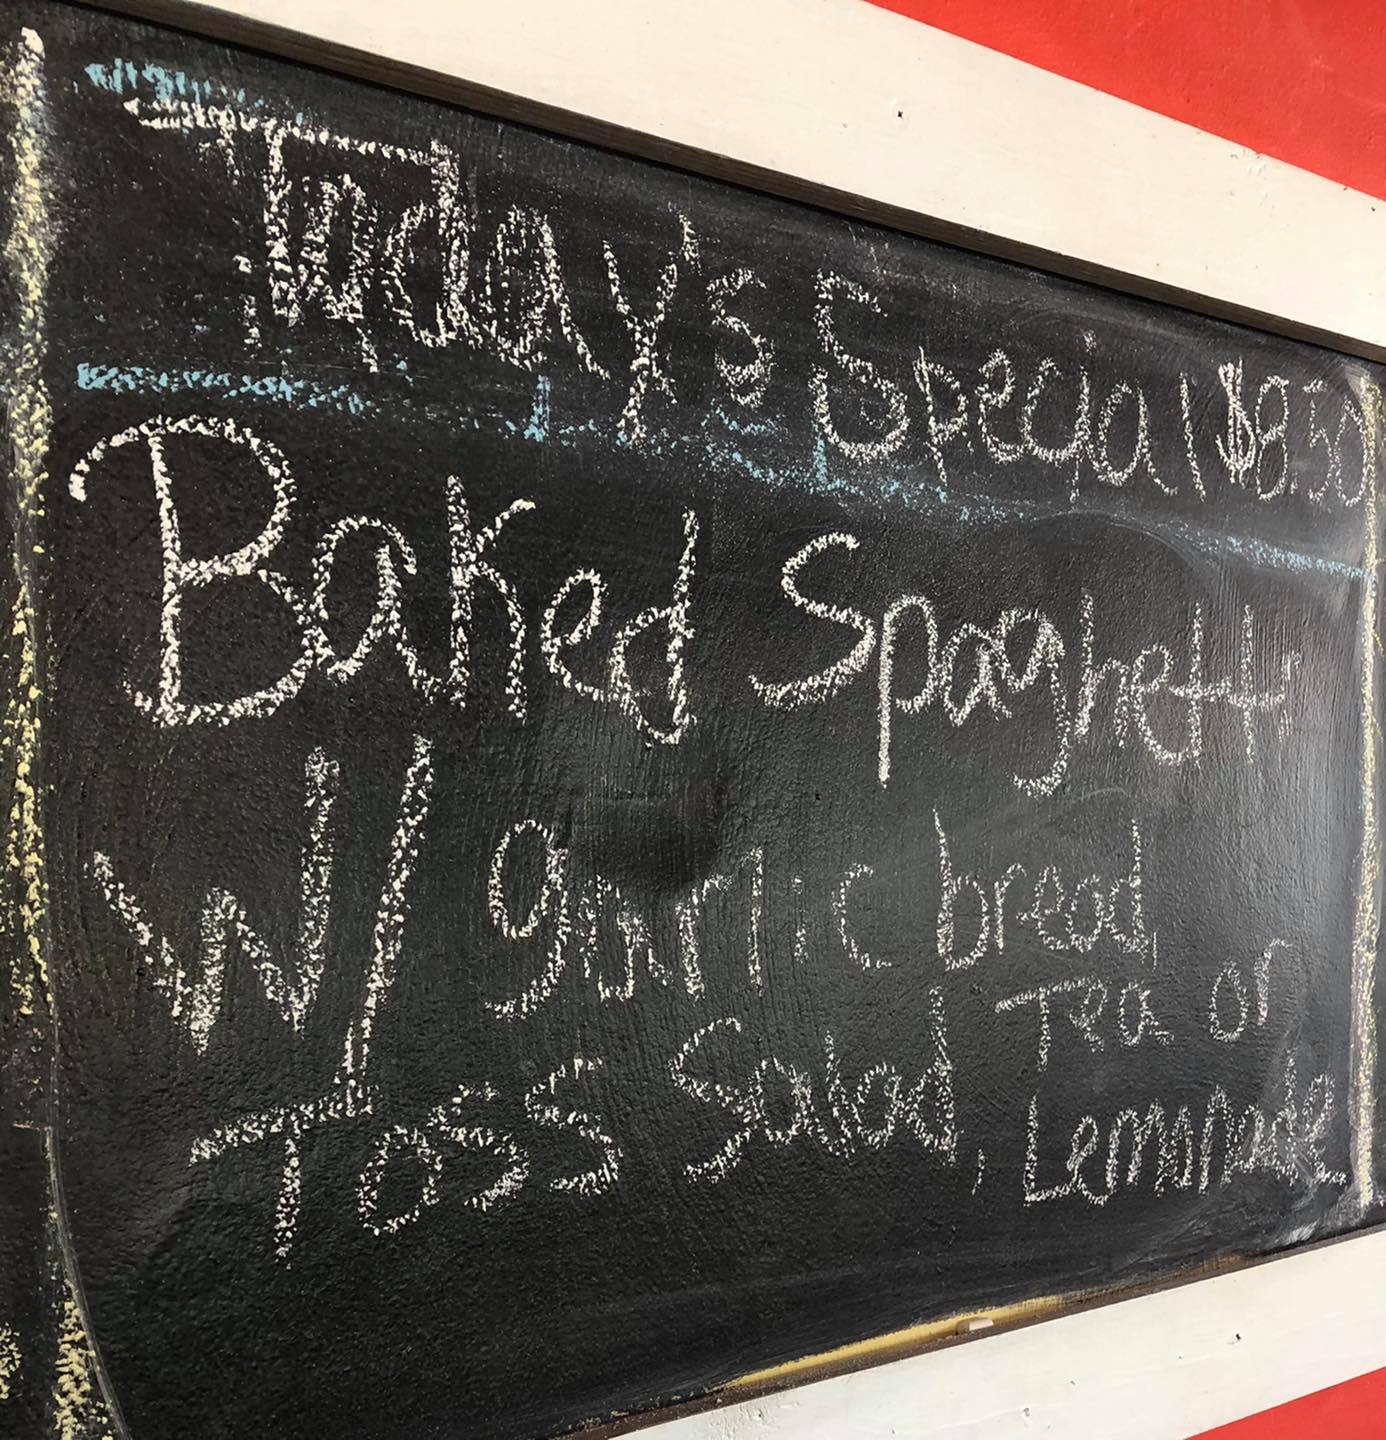 Today's Special $8.50
Baked Spaghetti
W/ garlic bread
Toss Salad, Tea or
Lemonade